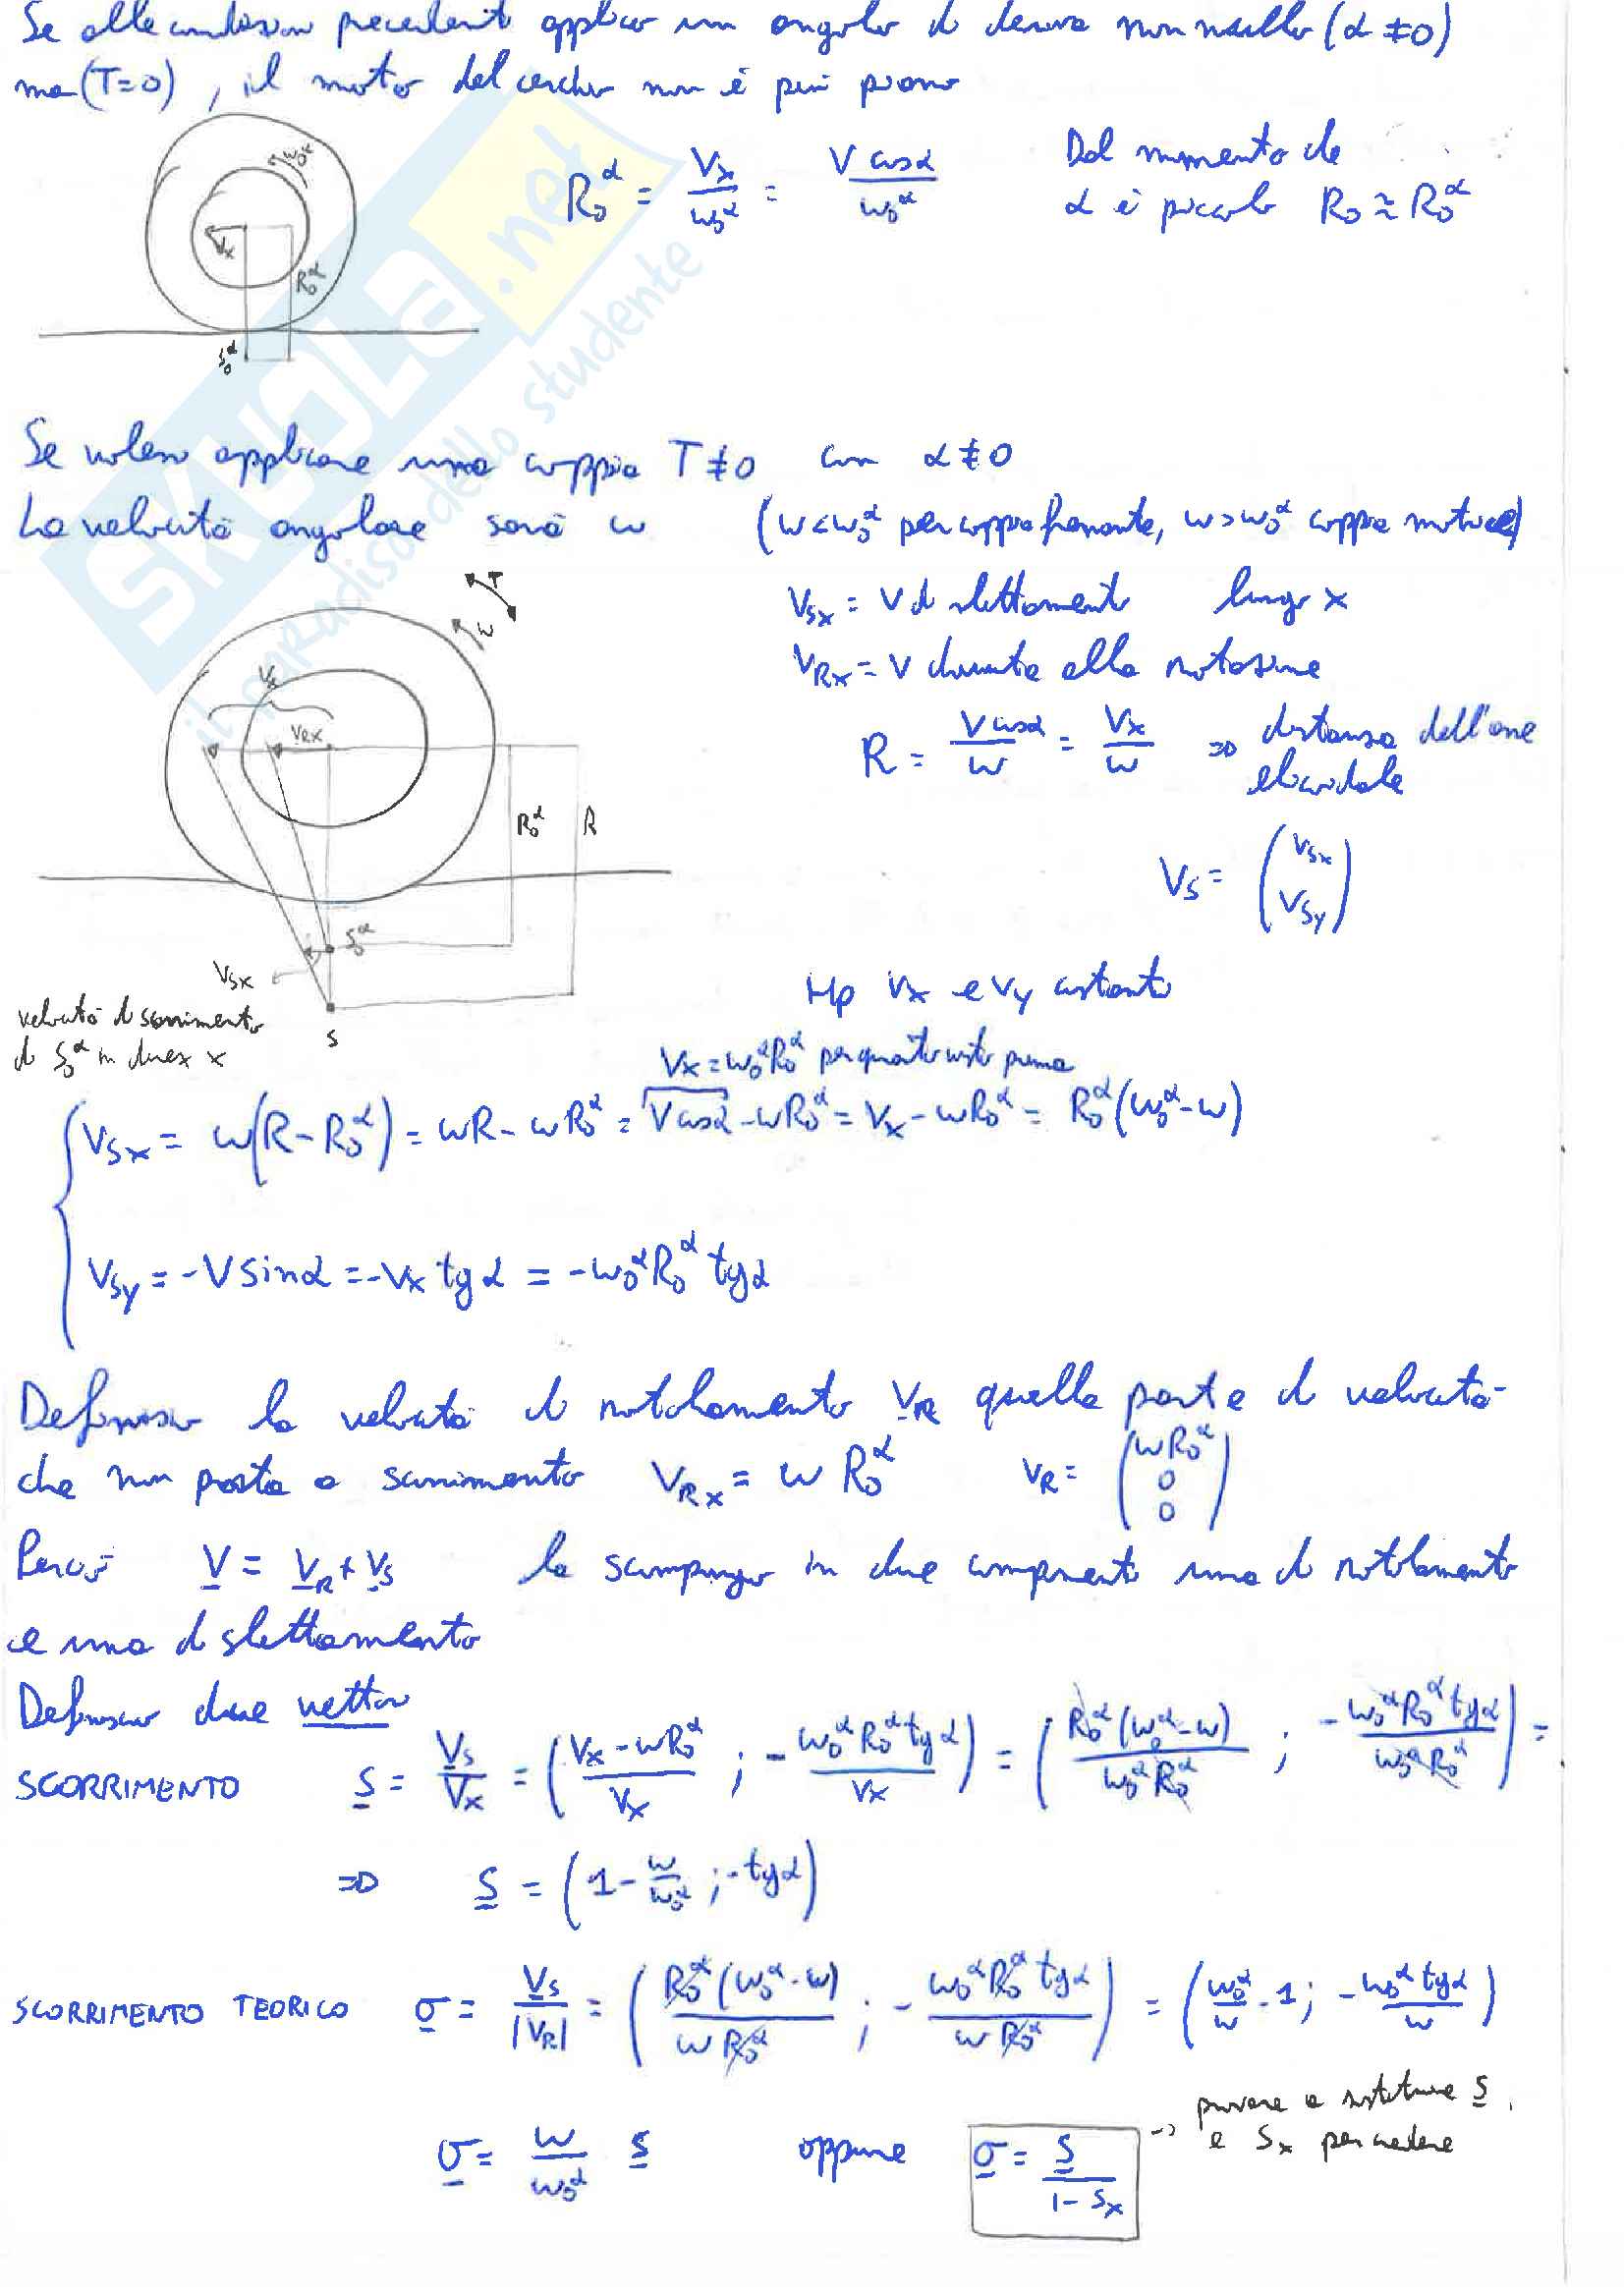 Se alle condizioni precedenti applico un angolo di deriva non nullo (α ≠ 0)
ma (T=0), il moto del cerchio non è più piano
R₀^α = Vx/ω₀^α = V cosα/ω₀^α
Dal momento che
α è piccolo R₀ ≈ R₀^α
ω₀^α
Vx
R₀^α
S₀^α
SKUOLA.net
il paradiso dello studente
Se volessi applicare una coppia T≠0 con α≠0
La velocità angolare sarà ω (ω<ω₀^α per coppia frenante, ω>ω₀^α coppia motrice)
V_Sx = V di slittamento lungo x
V_Rx = V dovuta alla rotazione
R = V cosα/ω = Vx/ω => distanza dell'asse
elicoidale
V_S = (V_Sx V_Sy)
T
ω
Vx
V_Rx
R₀^α
R
S₀^α
V_Sx
S
velocità di scorrimento
di S₀^α in direz x
Hp Vx e Vy costanti
Vx = ω₀^α R₀^α per quanto visto prima
V_Sx = ω(R-R₀^α) = ωR - ωR₀^α = V cosα - ωR₀^α = Vx - ωR₀^α = R₀^α(ω₀^α-ω)
V_Sy = -V sinα = -Vx tgα = -ω₀^α R₀^α tgα
Definisco la velocità di rotolamento V_R quella parte di velocità
che non porta a scorrimento V_Rx = ω R₀^α V_R = (ωR₀^α 0 0)
Perciò V = V_R + V_S la scompongo in due componenti una di rotolamento
e una di slittamento
Definisco due vettori
SCORRIMENTO S = V_S/Vx = ((Vx - ωR₀^α)/Vx ; - ω₀^α R₀^α tgα/Vx) = (R₀^α(ω₀^α-ω)/ω₀^α R₀^α ; - ω₀^α R₀^α tgα/ω₀^α R₀^α) =
=> S = (1 - ω/ω₀^α ; -tgα)
SCORRIMENTO TEORICO σ = V_S/|V_R| = (R₀^α(ω₀^α-ω)/ωR₀^α ; - ω₀^α R₀^α tgα/ωR₀^α) = (ω₀^α/ω - 1 ; - ω₀^α tgα/ω)
σ = ω/ω₀^α S oppure σ = S/(1-Sx) -> provare a sostituire S
e Sx per vedere